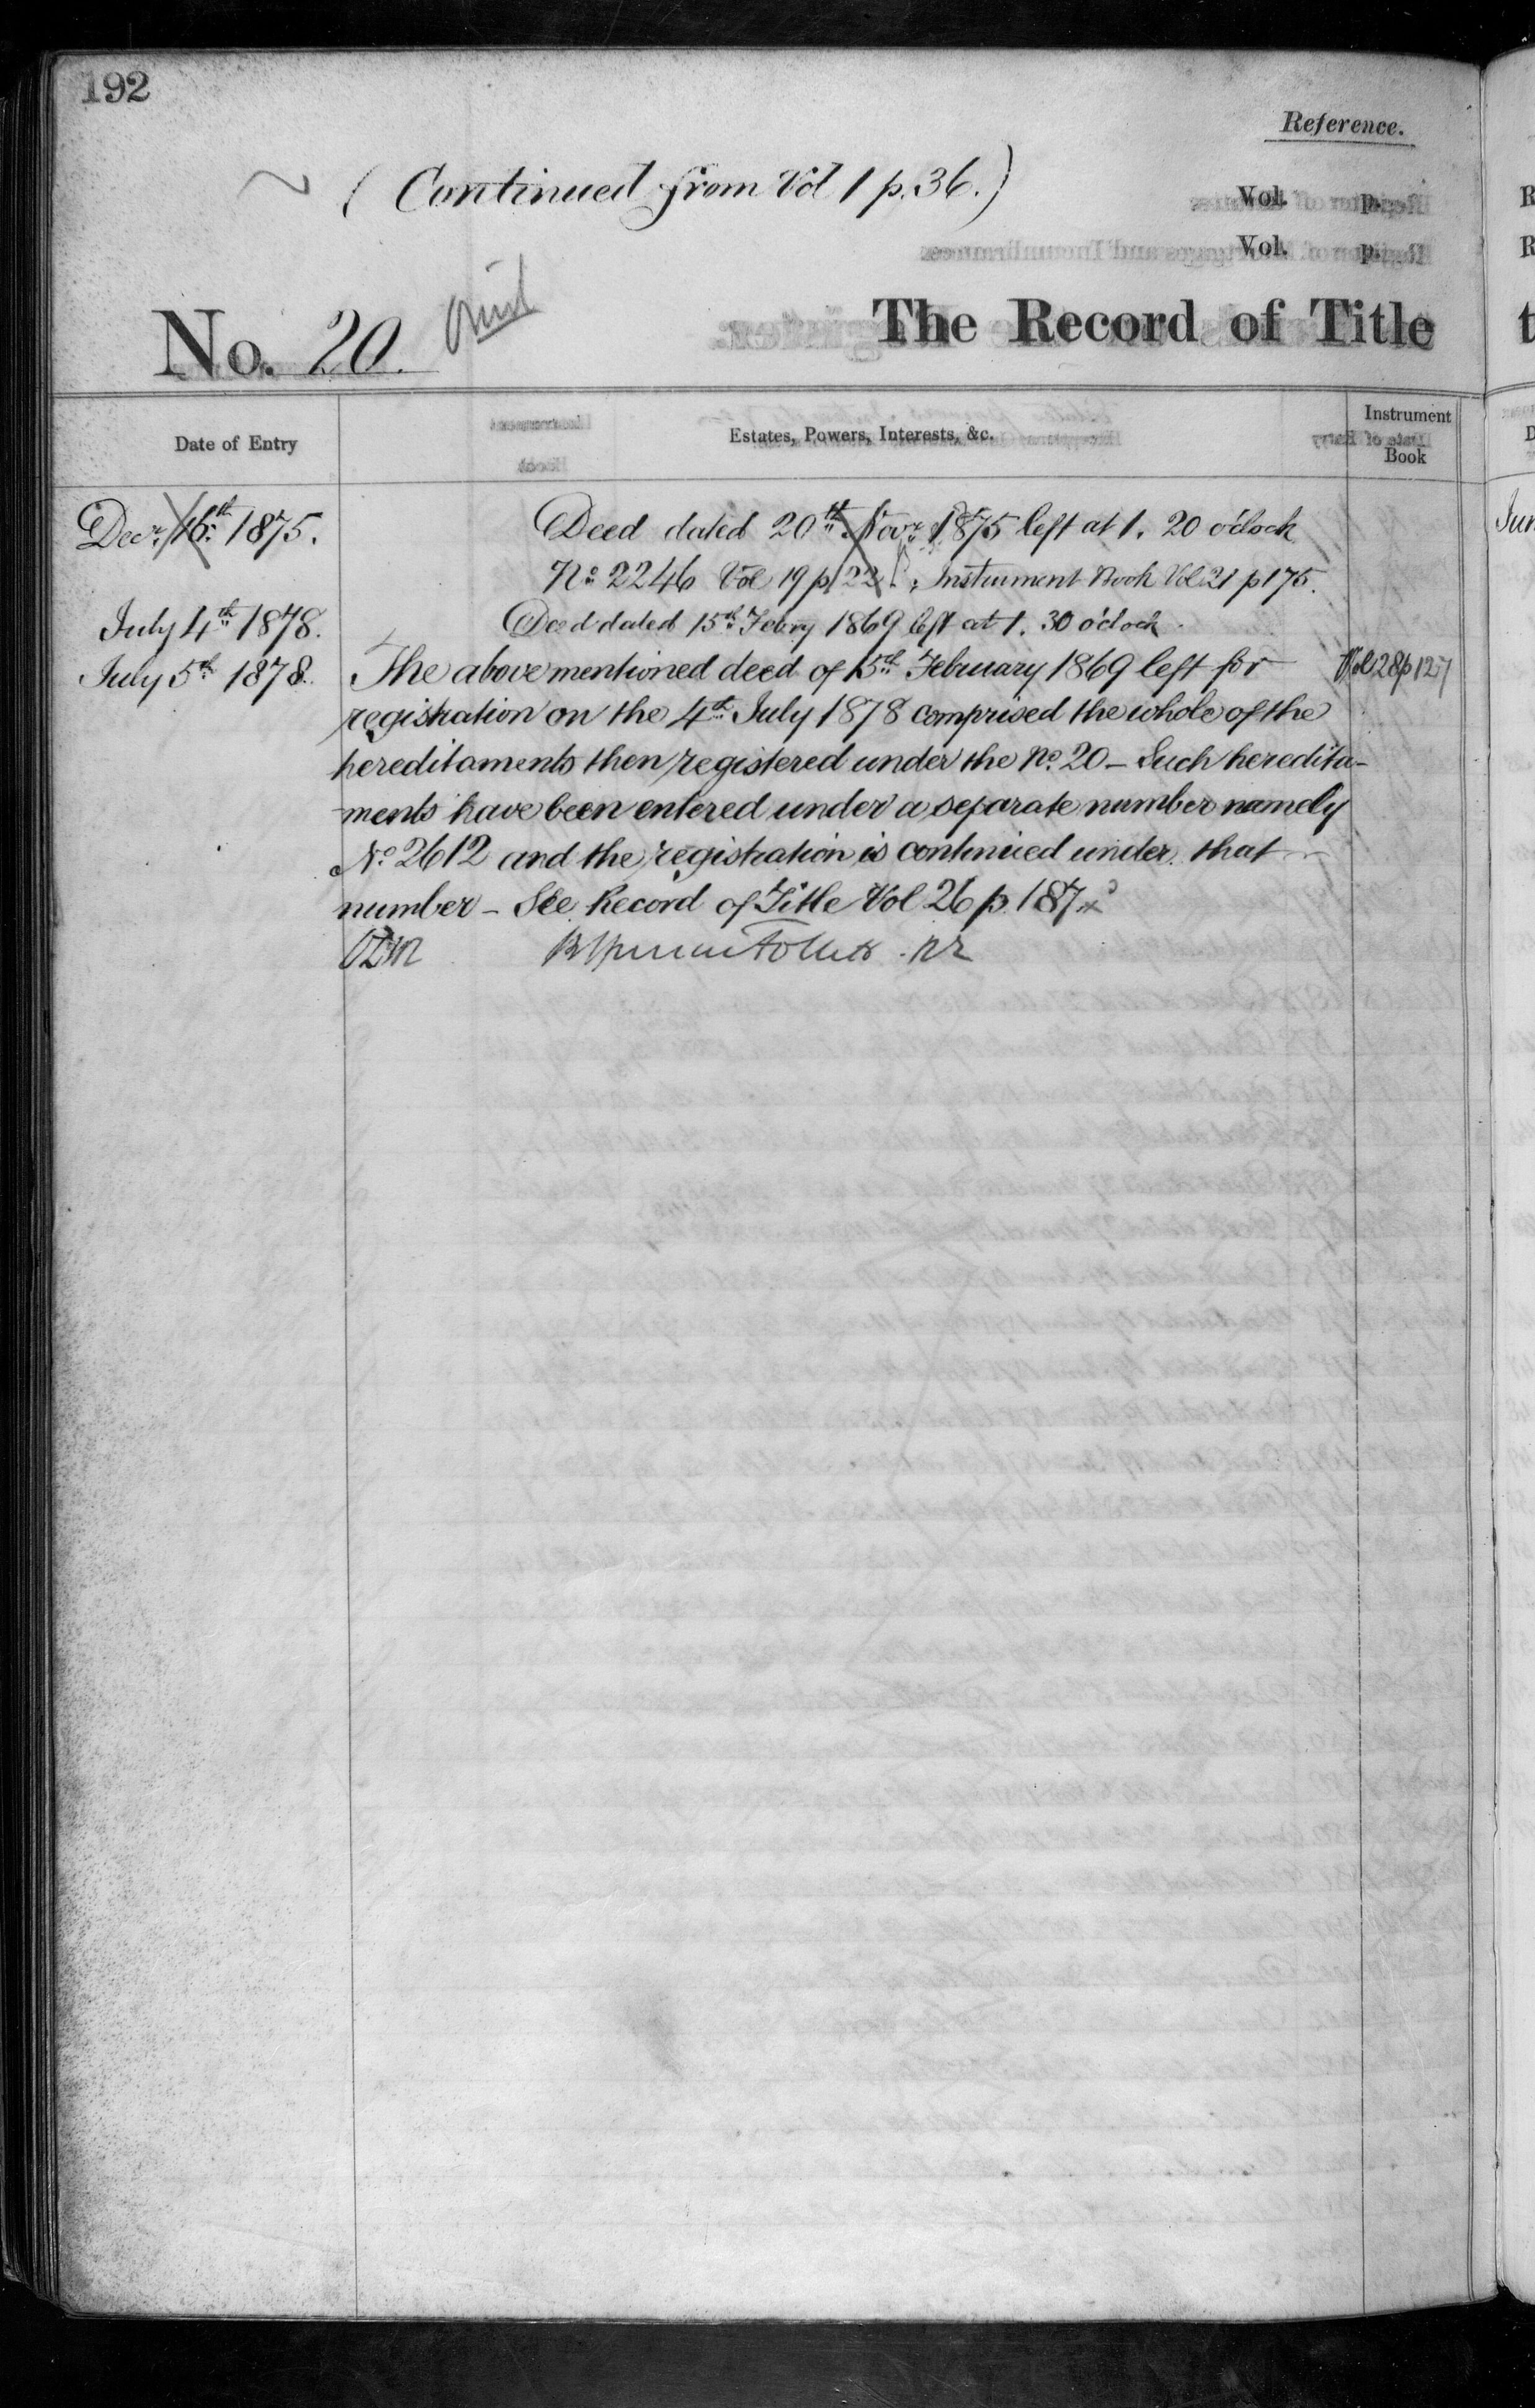 192
Reference.
(Continued from Vol 1 p. 36.)
Vol. p.
Vol. p.
No. 20.
The Record of Title
Date of Entry
Estates, Powers, Interests, &c.
Instrument Book
Decr. 16th 1875.
Deed dated 20th Novr 1875 left at 1. 20 o'clock
No 2246 Vol 19 p 22. Instrument Book Vol 21 p 175.
July 4th 1878.
Deed dated 15th Febry 1869 left at 1. 30 o'clock.
July 5th 1878.
The above mentioned deed of 15th February 1869 left for
Vol 28 p 127
registration on the 4th July 1878 comprised the whole of the
hereditaments then registered under the No. 20 – Such heredita-
-ments have been entered under a separate number namely
No 2612 and the registration is continued under that
number – See Record of Title Vol 26 p. 187